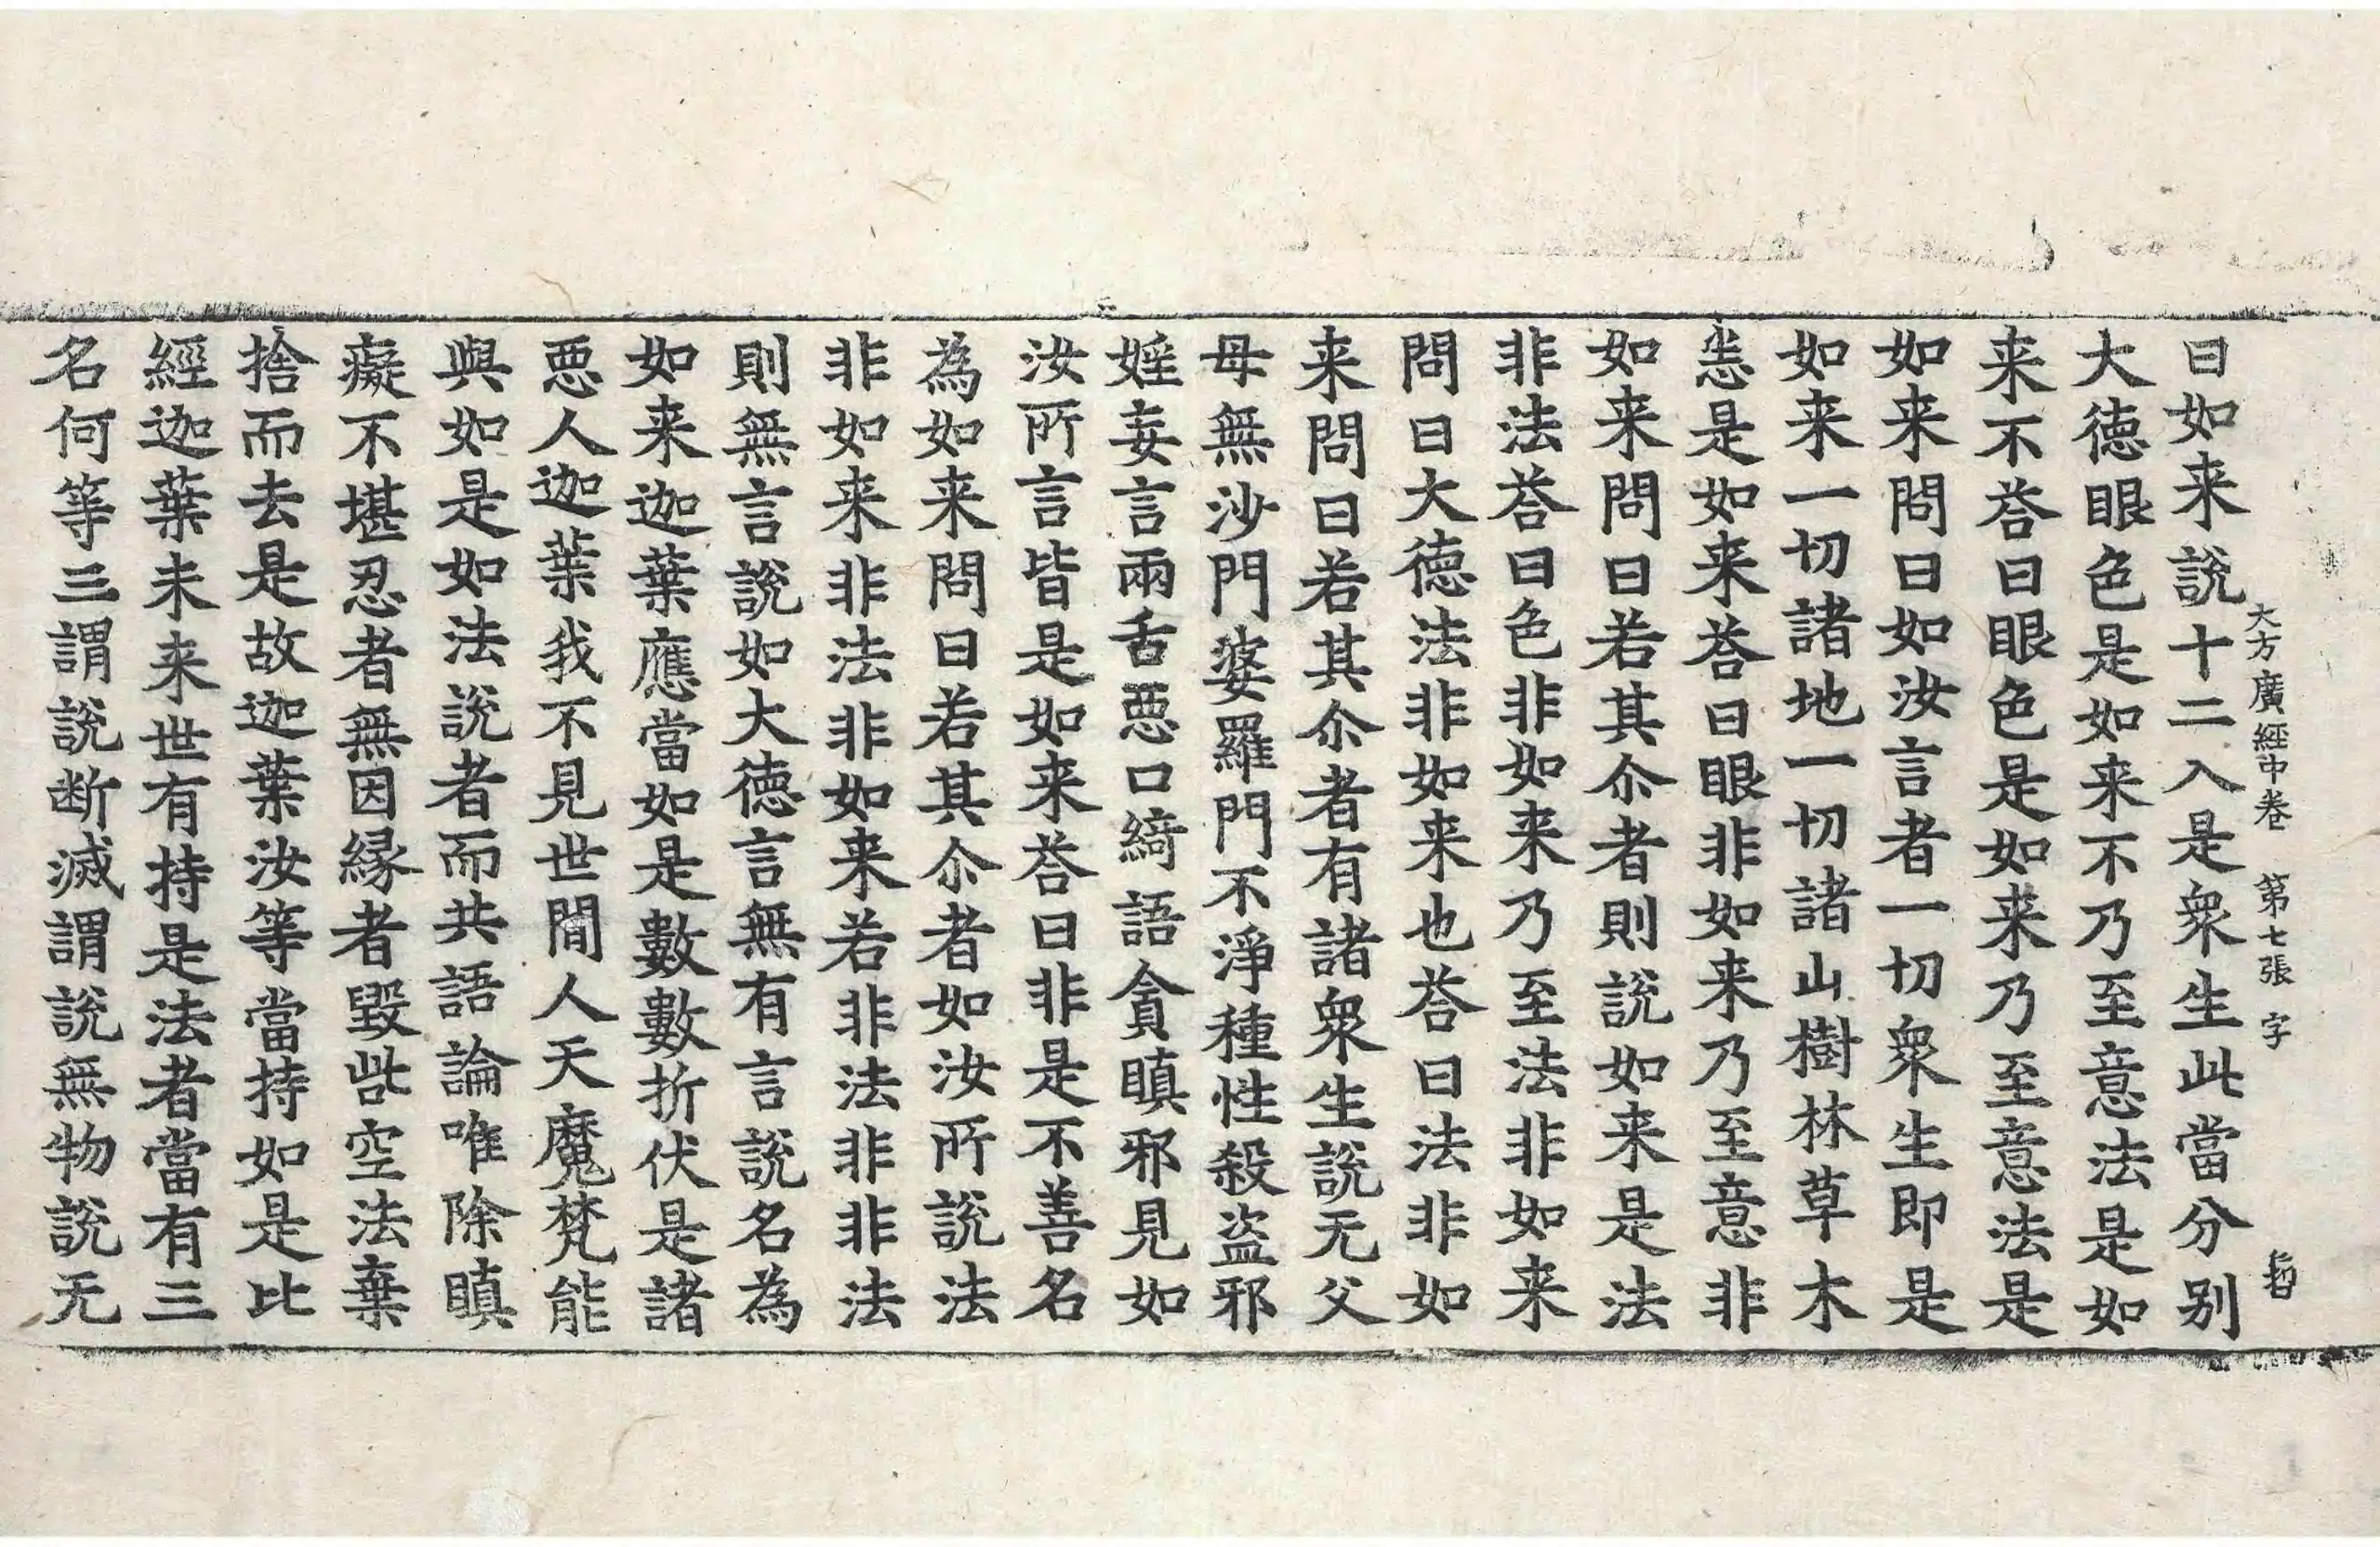 大方廣經中卷 第七張 字
曰如来說十二入是衆生此當分别
大德眼色是如来不乃至意法是如
来不荅曰眼色是如来乃至意法是
如来問曰如汝言者一切衆生即是
如来一切諸地一切諸山樹林草木
悉是如来荅曰眼非如来乃至意非
如来問曰若其尒者則說如来是法
非法荅曰色非如来乃至法非如来
問曰大德法非如来也荅曰法非如
来問曰若其尒者有諸衆生說无父
母無沙門婆羅門不淨種性殺盜邪
婬妄言兩舌惡口綺語貪瞋邪見如
汝所言皆是如来荅曰非是不善名
為如来問曰若其尒者如汝所說法
非如来非法非如来若非法非非法
則無言說如大德言無有言說名為
如来迦葉應當如是數數折伏是諸
惡人迦葉我不見世間人天魔梵能
與如是如法說者而共語論唯除瞋
癡不堪忍者無因緣者毀呰空法棄
捨而去是故迦葉汝等當持如是比
經迦葉未来世有持是法者當有三
名何等三謂說断滅謂說無物說无